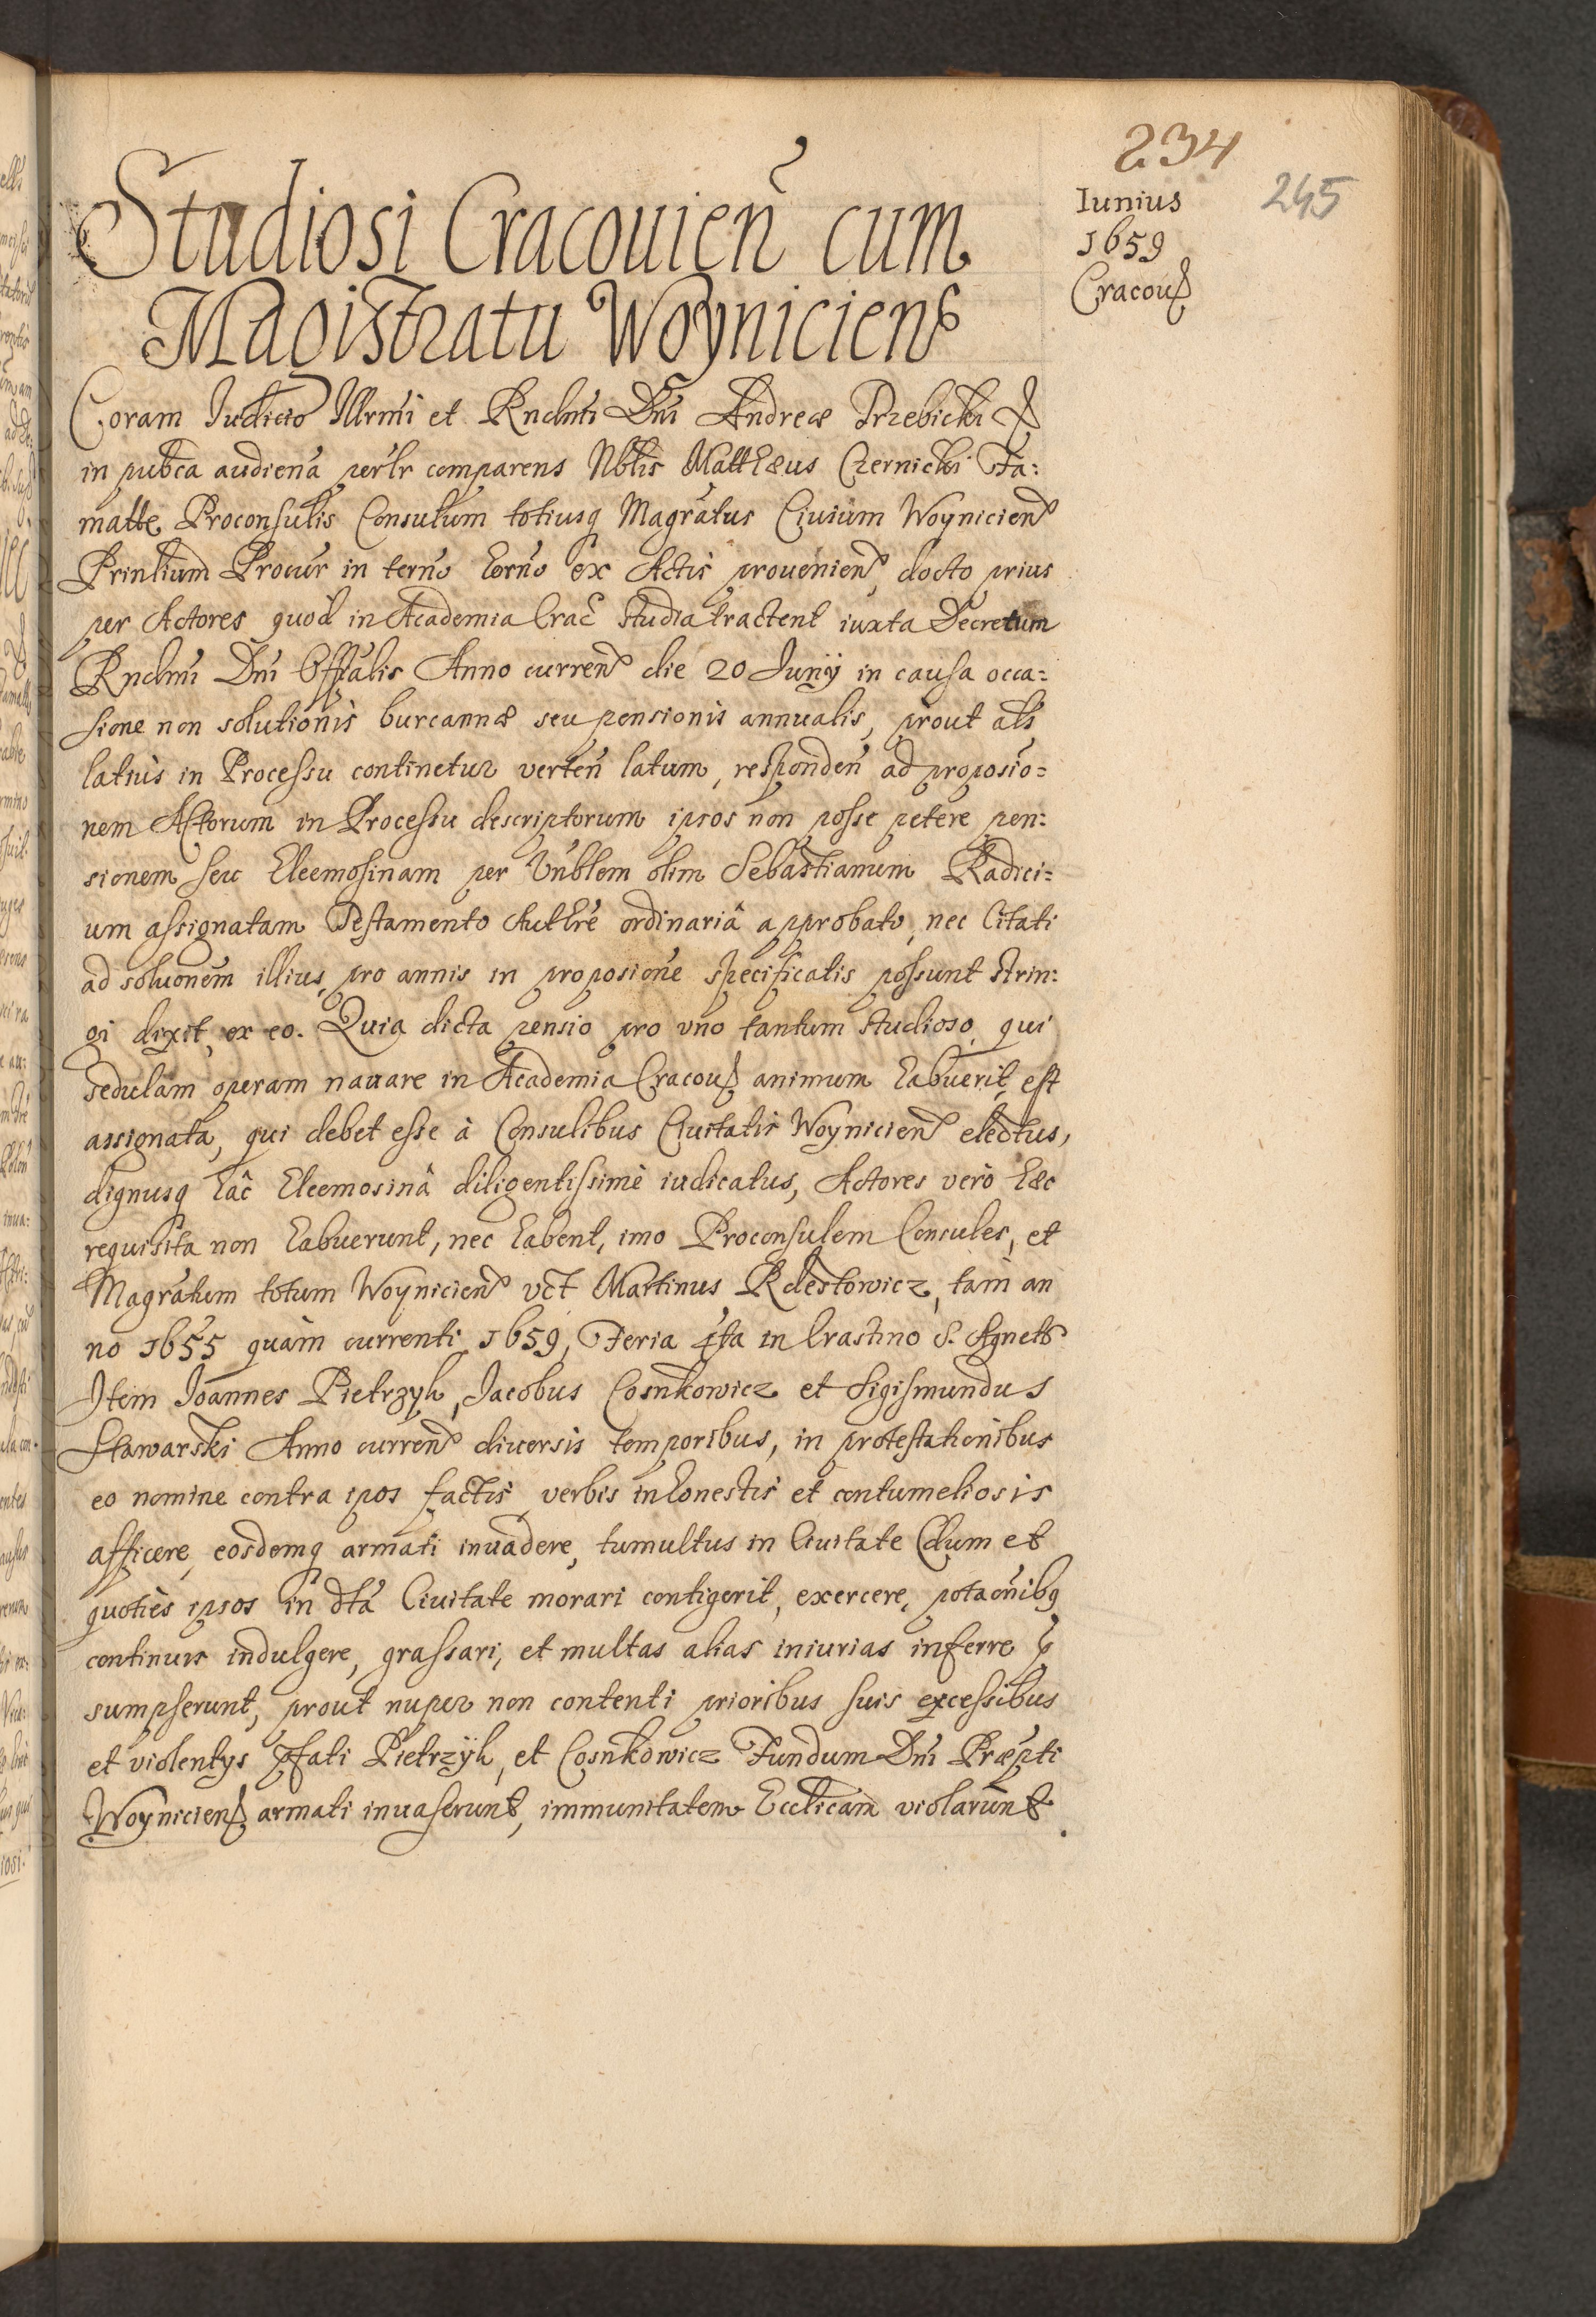 234
Iunius
245
1659
Cracou
Studiosi Cracouien cum
Magistratu Woynicien
Coram Iudicio Illrmi et Rndmi Dni Andreæ Trzebicki
in pubca audiena perlr comparens Nblis Matthæus Czernicki Fa:
matte Proconsulis Consulum totiusq Magratus Ciuium Woynicien
Prinlium Procur in terno horno ex Actis prouenien docto prius
per Actores quod in Academia Crac studia tractent iuxta Decretum
Rndmi Dni Offalis Anno curren die 20 Junij in causa occa:
sione non solutionis burcannæ seu pensionis annualis, prout als
latius in Processu continetur verten latum, responden ad proposio:
nem Actorum in Processu descriptorum ipsos non posse petere pen:
sionem seu Eleemosinam per Vnblem olim Sebastianum Radici:
um assignatam Testamento Authre ordinariâ approbato, nec Citati
ad soluonem illius, pro annis in proposione specificatis possunt strin:
gi dixit, ex eo. Quia dicta pensio pro vno tantum studioso, qui
sedulam operam nauare in Academia Cracou animum habuerit, est
assignata, qui debet esse à Consulibus Ciuitatis Woynicien electus,
dignusq hac Eleemosinâ diligentissimè iudicatus, Actores verò hæc
requisita non habuerunt, nec habent, imo Proconsulem Consules, et
Magratum totum Woynicien vct Martinus Rdestowicz, tam an
no 1655 quàm currenti 1659, Feria 4ta in Crastino S. Agnetis
Item Joannes Pietrzyk, Jacobus Cosnkowicz et Sigismundus
Stawarski Anno curren diuersis temporibus, in protestationibus
eo nomine contra ipos factis verbis inhonestis et contumeliosis
afficere, eosdemq armati inuadere, tumultus in Ciuitate Cdum et
quoties ipsos in dta Ciuitate morari contigerit, exercere, potaonibq
continuis indulgere, grassari, et multas alias iniurias inferre p
sumpserunt, prout nuper non contenti prioribus suis excessibus
et violentys pfati Pietrzÿk, et Cosnkowicz Fundum Dni Præpti
Woynicien armati inuaserunt, immunitatem Ecclicam violarunt